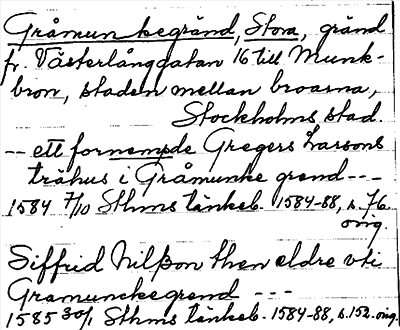 Gråmunkegränd, Stora, gränd
fr. Västerlånggatan 16 till Munk-
bron, staden mellan broarna,
Stockholms stad.
-- ett fornempde Gregers Larsons
trähus i Gråmunke grend ---
1584 7/10 Sthms tänkeb. 1584-88, s. 76
orig.
Siffrid Nilsson then eldre vti
Gramunckegrend ---
1585 30/1 Sthms tänkeb. 1584-88, s. 152. orig.